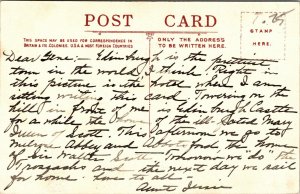 POST CARD
THIS SPACE MAY BE USED FOR CORRESPONDENCE IN
BRITAIN & ITS COLONIES, U.S.A. & MOST FOREIGN COUNTRIES
ONLY THE ADDRESS
TO BE WRITTEN HERE.
STAMP
HERE
Dear Gene:- Edinburgh is the prettiest
town in the world, I think. Right in
this picture is the hotel where I am
sitting writing this card. Towering on the
hill in front Edinburgh Castle
for a while the home of the ill-fated Mary
Queen of Scott. This afternoon we go to
Melrose Abbey and Abbotsford, the "home"
of Sir Walter Scott. Tomorrow we do the
Trossachs and the next day we sail
for home. Love to all
Aunt